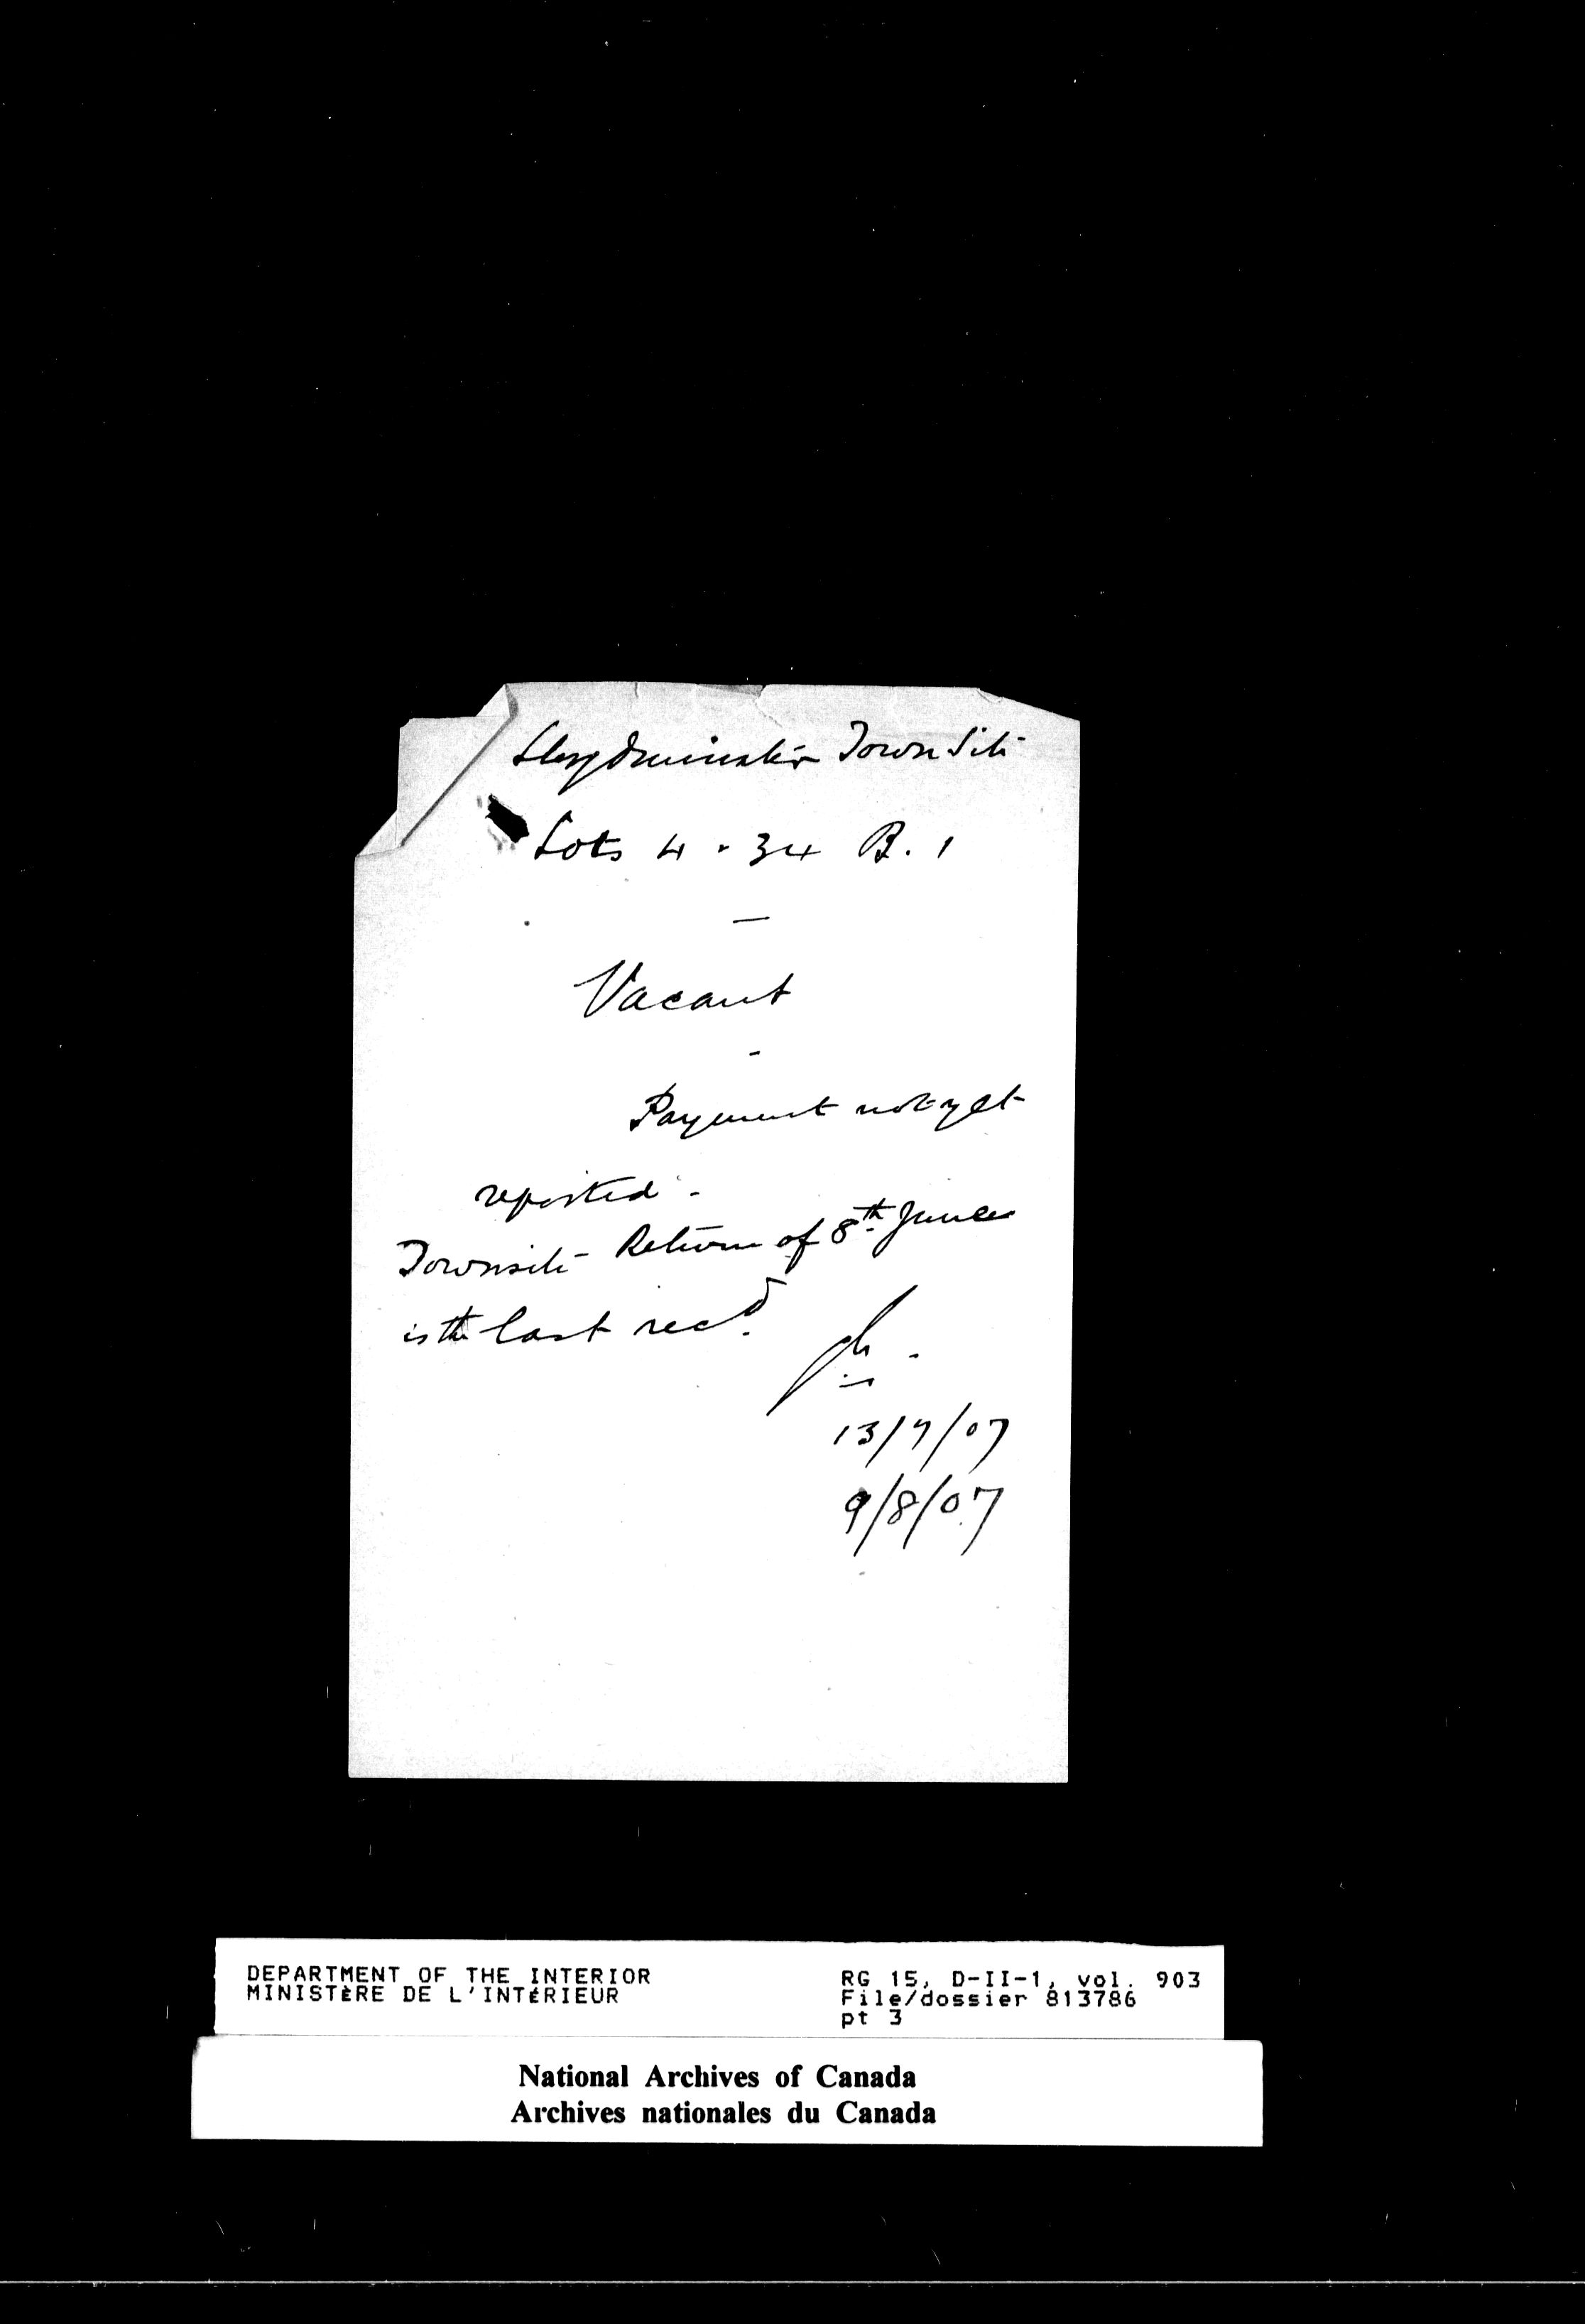 Lloydminster Town Site
Lots 4 . 34 B. 1
—
Vacant
-
Payment not yet
reported -
Townsite Return of 8th June
is the last recd.
13/7/07
9/8/07
DEPARTMENT OF THE INTERIOR
MINISTÈRE DE L'INTÉRIEUR
RG 15, D-II-1, vol. 903
File/dossier 813786
pt 3
National Archives of Canada
Archives nationales du Canada